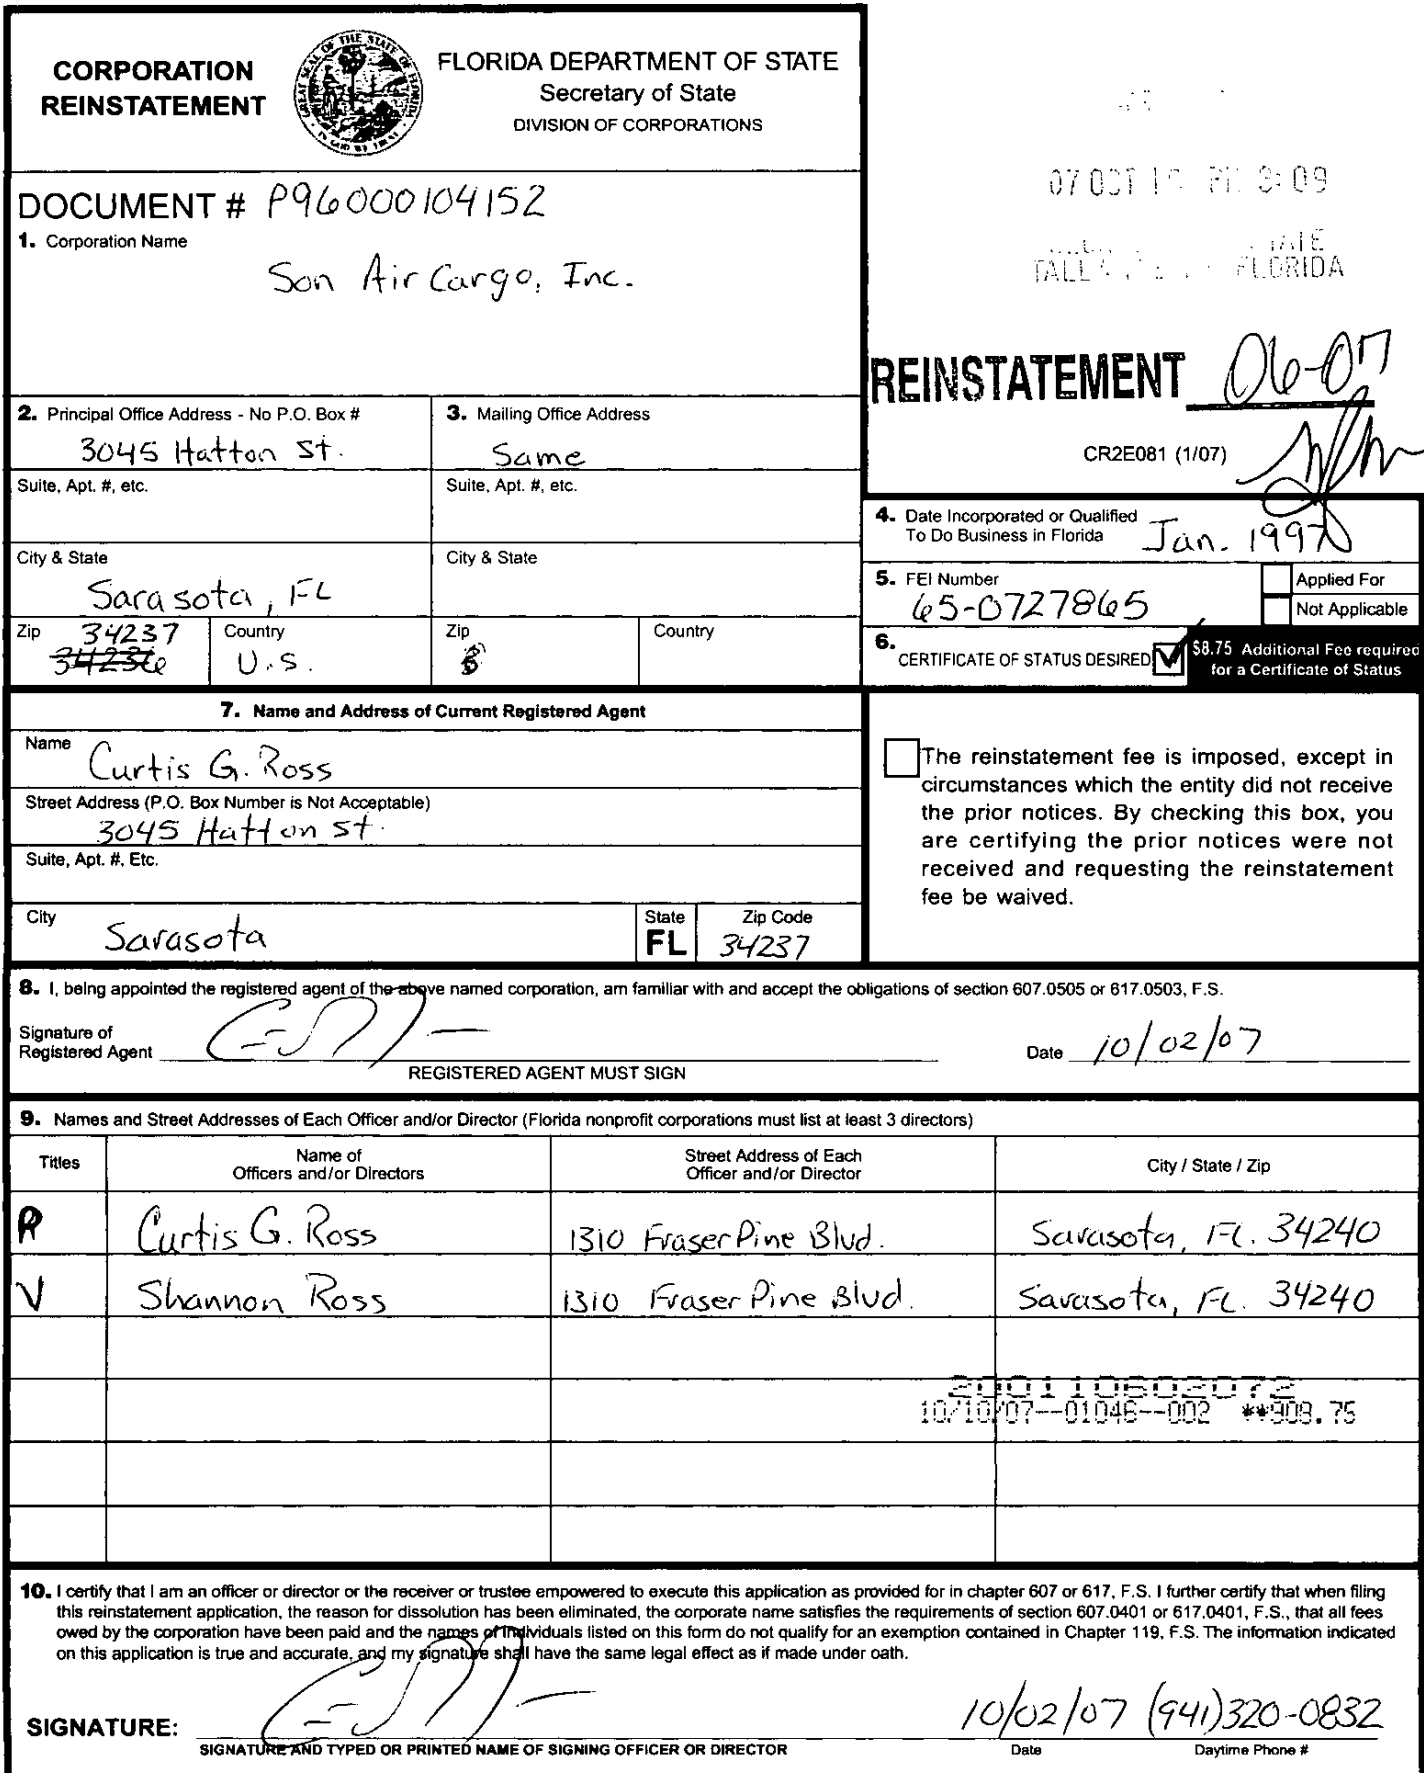 CORPORATION
REINSTATEMENT
GREAT SEAL OF THE STATE OF FLORIDA
IN GOD WE TRUST
FLORIDA DEPARTMENT OF STATE
Secretary of State
DIVISION OF CORPORATIONS
07 OCT PM 3:09
TATE
FLORIDA
DOCUMENT # P96000104152
1. Corporation Name
Son Air Cargo, Inc.
REINSTATEMENT 06-07
CR2E081 (1/07)
2. Principal Office Address - No P.O. Box #
3045 Hatton St.
3. Mailing Office Address
Same
Suite, Apt. #, etc.
Suite, Apt. #, etc.
4. Date Incorporated or Qualified
To Do Business in Florida
Jan. 1997
City & State
Sarasota, FL
City & State
5. FEI Number
65-0727865
Applied For
Not Applicable
Zip
34237
34236
Country
U.S.
Zip
Country
6. CERTIFICATE OF STATUS DESIRED
$8.75 Additional Fee required
for a Certificate of Status
7. Name and Address of Current Registered Agent
Name
Curtis G. Ross
Street Address (P.O. Box Number is Not Acceptable)
3045 Hatton St.
Suite, Apt. #, Etc.
City
Sarasota
State
FL
Zip Code
34237
The reinstatement fee is imposed, except in
circumstances which the entity did not receive
the prior notices. By checking this box, you
are certifying the prior notices were not
received and requesting the reinstatement
fee be waived.
8. I, being appointed the registered agent of the above named corporation, am familiar with and accept the obligations of section 607.0505 or 617.0503, F.S.
Signature of
Registered Agent
REGISTERED AGENT MUST SIGN
Date 10/02/07
9. Names and Street Addresses of Each Officer and/or Director (Florida nonprofit corporations must list at least 3 directors)
Titles
Name of
Officers and/or Directors
Street Address of Each
Officer and/or Director
City / State / Zip
P Curtis G. Ross 1310 Fraser Pine Blvd. Sarasota, FL. 34240
V Shannon Ross 1310 Fraser Pine Blvd. Sarasota, FL. 34240
200110602072
10/10/07--01046--002 **908.75
10. I certify that I am an officer or director or the receiver or trustee empowered to execute this application as provided for in chapter 607 or 617, F.S. I further certify that when filing
this reinstatement application, the reason for dissolution has been eliminated, the corporate name satisfies the requirements of section 607.0401 or 617.0401, F.S., that all fees
owed by the corporation have been paid and the names of individuals listed on this form do not qualify for an exemption contained in Chapter 119, F.S. The information indicated
on this application is true and accurate, and my signature shall have the same legal effect as if made under oath.
SIGNATURE:
10/02/07 (941)320-0832
SIGNATURE AND TYPED OR PRINTED NAME OF SIGNING OFFICER OR DIRECTOR
Date
Daytime Phone #